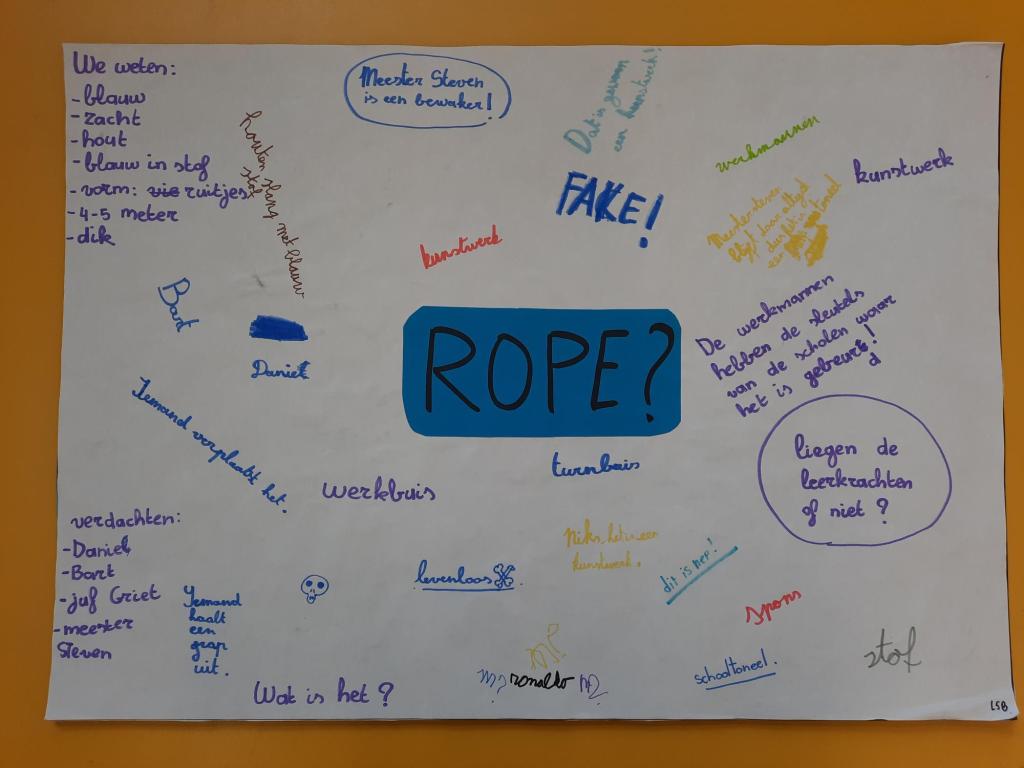 We weten:
- blauw
- zacht
- hout
- blauw in stof
- vorm: vie ruitjes
- 4-5 meter
- dik
Meester Steven
is een bewaker!
Dat is gewoon
een kunstwerk!
houten stang met blauw
stof
werkmannen
kunstwerk
FAKE!
Meester steven
blijft daar altijd
een toneel
kunstwerk
Bart
Daniel
ROPE?
De werkmannen
hebben de sleutels
van de scholen waar
het is gebeurt!
d
Iemand verplaatst het.
turnbuis
werkbuis
liegen de
leerkrachten
of niet?
verdachten:
- Daniel
- Bart
- juf Griet
- meester
Steven
Iemand
haalt
een
grap
uit.
levenloos
Niks, het is een
kunstwerk.
dit is nep!
spons
stof
Wat is het?
ronalko
schooltoneel.
L5B